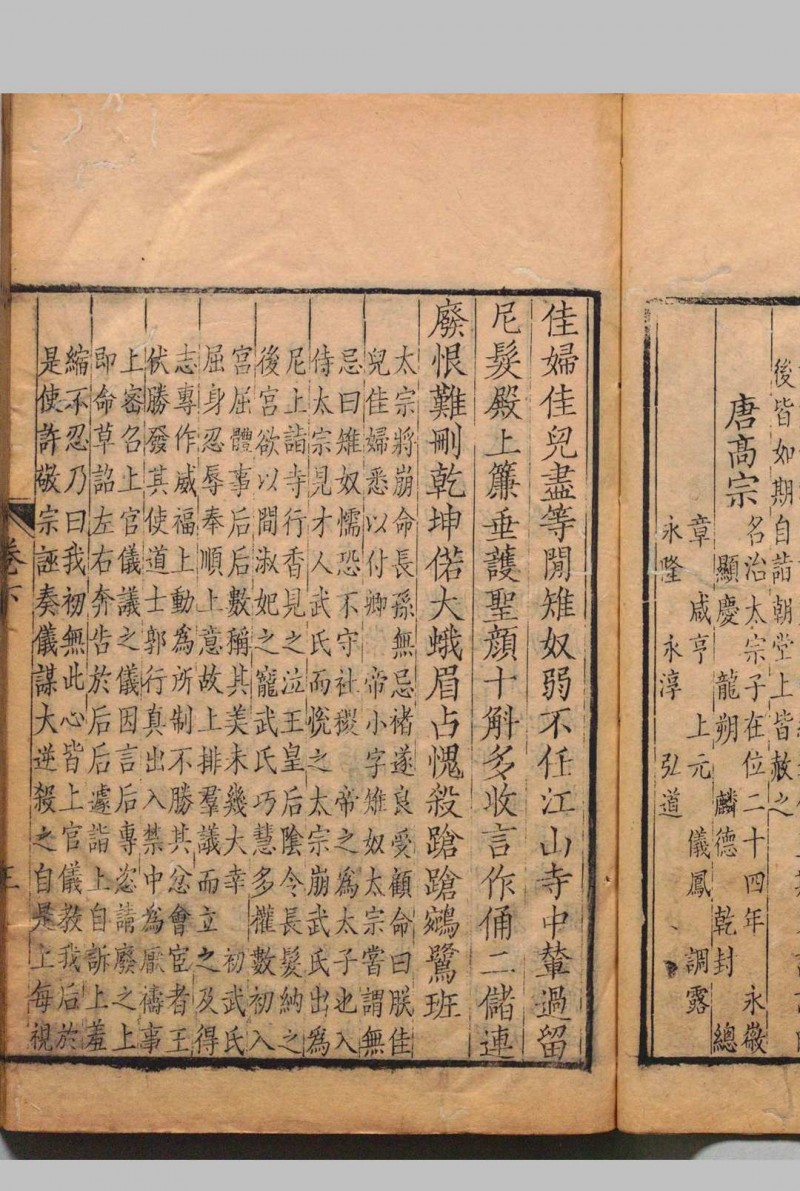 後皆如期自詣朝堂上皆赦之
唐高宗
名治太宗子在位二十四年 永徽
顯慶 龍朔 麟德 乾封 總
章 咸亨 上元 儀鳳 調露
永隆 永淳 弘道
佳婦佳兒盡等閒雉奴弱不任江山寺中輦過留
尼髮殿上簾垂護聖顏十斛多收言作俑二儲連
廢恨難刪乾坤偌大蛾眉占愧殺蹌蹌鵷鷺班
太宗將崩命長孫無忌褚遂良受顧命曰朕佳
兒佳婦悉以付卿 帝小字雉奴太宗嘗謂無
忌曰雉奴懦恐不守社稷 帝之為太子也入
侍太宗見才人武氏而悅之太宗崩武氏出為
尼上詣寺行香見之泣王皇后陰令長髮納之
後宮欲以間淑妃之寵武氏巧慧多權數初入
宮屈體事后后數稱其美未幾大幸 初武氏
屈身忍辱奉順上意故上排羣議而立之及得
志專作威福上動為所制不勝其忿會宦者王
伏勝發其使道士郭行真出入禁中為厭禱事
上密召上官儀議之儀因言后專恣請廢之上
即命草詔左右奔告於后后遽詣上自訴上羞
縮不忍乃曰我初無此心皆上官儀教我后於
是使許敬宗誣奏儀謀大逆殺之自是上每視
卷下